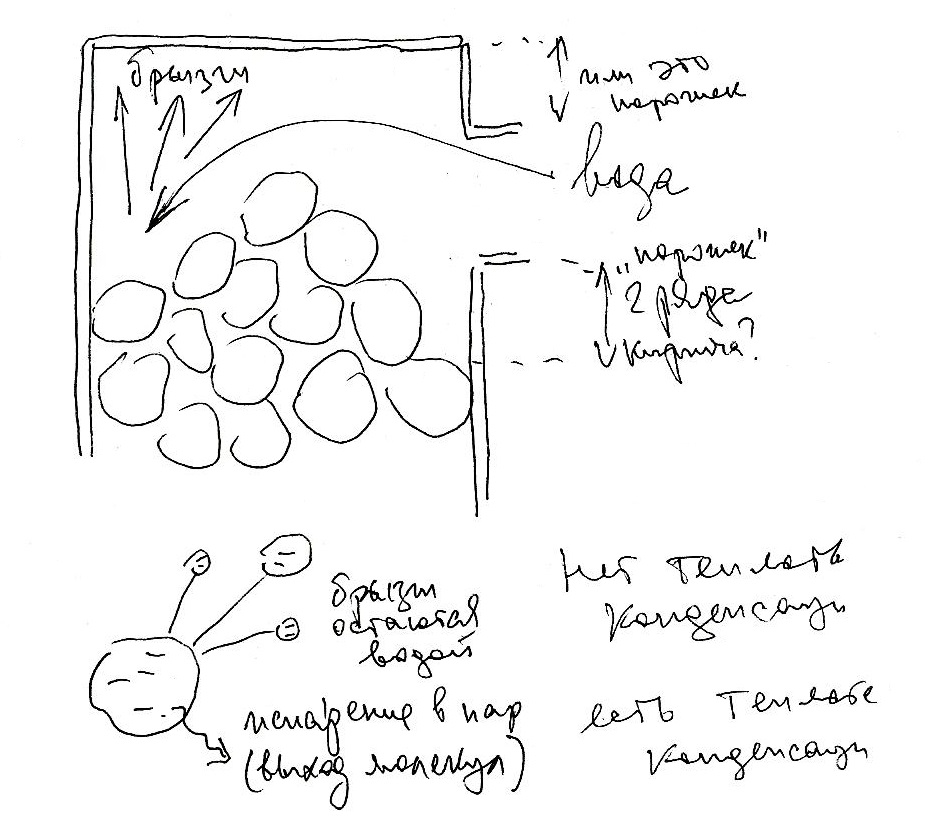 брызги
или это
порожек
вода
"порожек"
2 ряда
кирпича?
брызги
остаются
водой
нет теплоты
конденсации
испарение в пар
(выход молекул)
есть теплота
конденсации